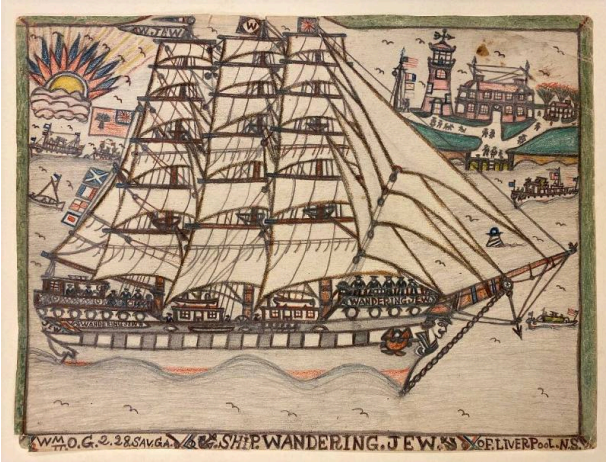 W.JEW
W
WANDERING.JEW
WANDERING.JEW
WM.O.G.2.28.SAV.GA. SHIP.WANDERING.JEW. OF.LIVERPOOL.N.S.